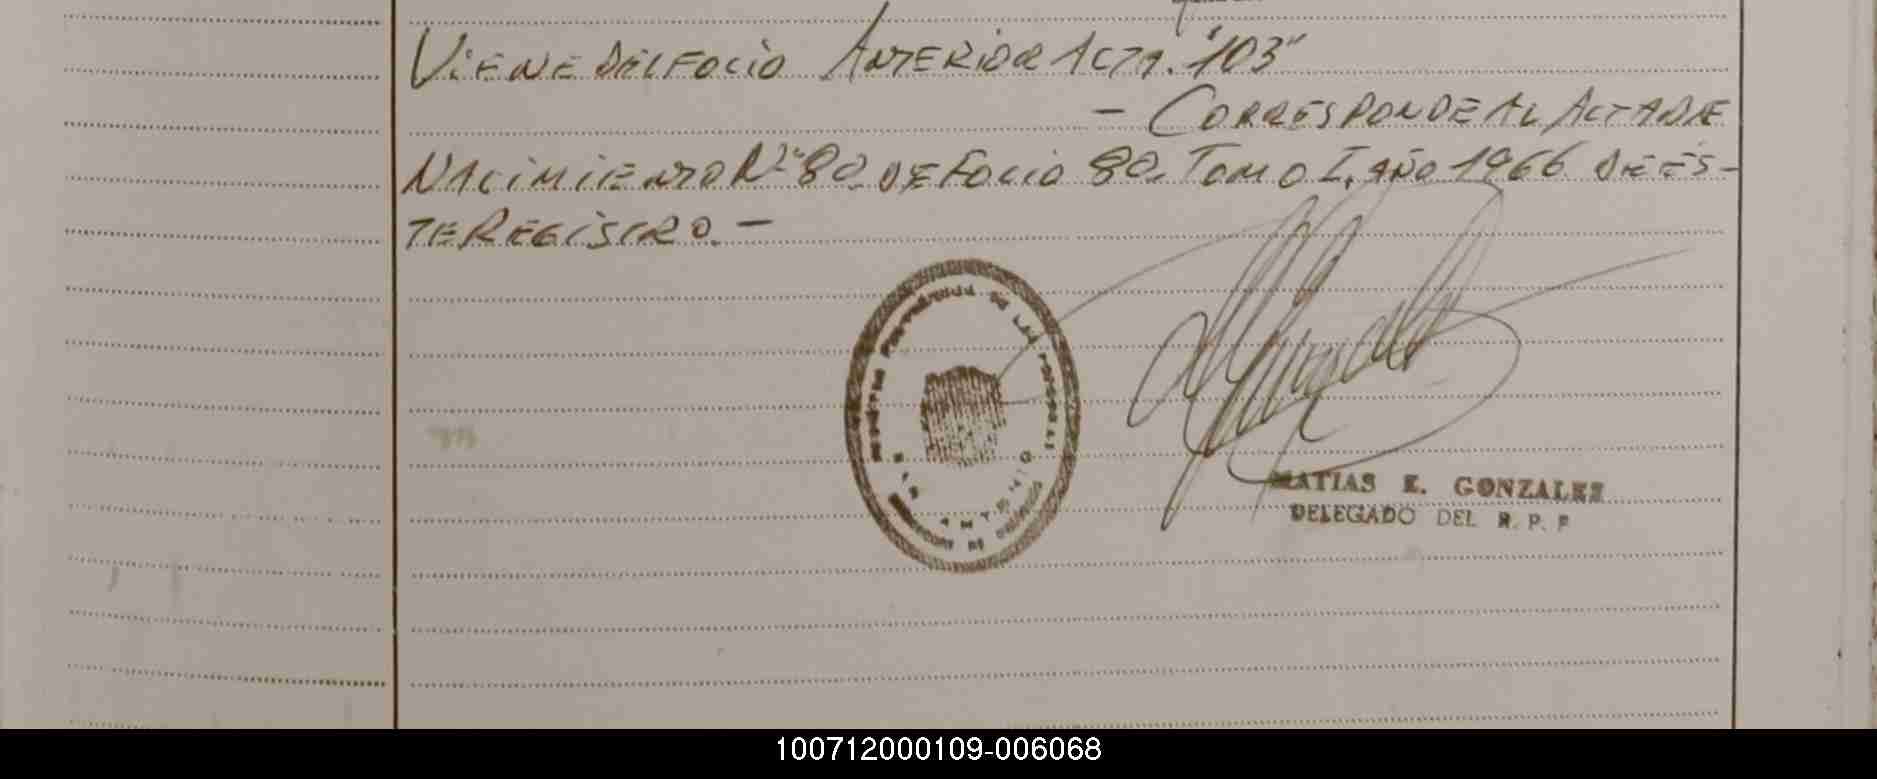 VIENE DEL FOLIO ANTERIOR ACTA. "103"
- CORRESPONDE AL ACTA DE
NACIMIENTO Nº 80. DE FOLIO 80. TOMO I. AÑO 1966 DE ES-
TE REGISTRO. -
REGISTRO PROVINCIAL DE LAS PERSONAS
SAN ANTONIO
MATIAS E. GONZALEZ
DELEGADO DEL R. P. P
100712000109-006068